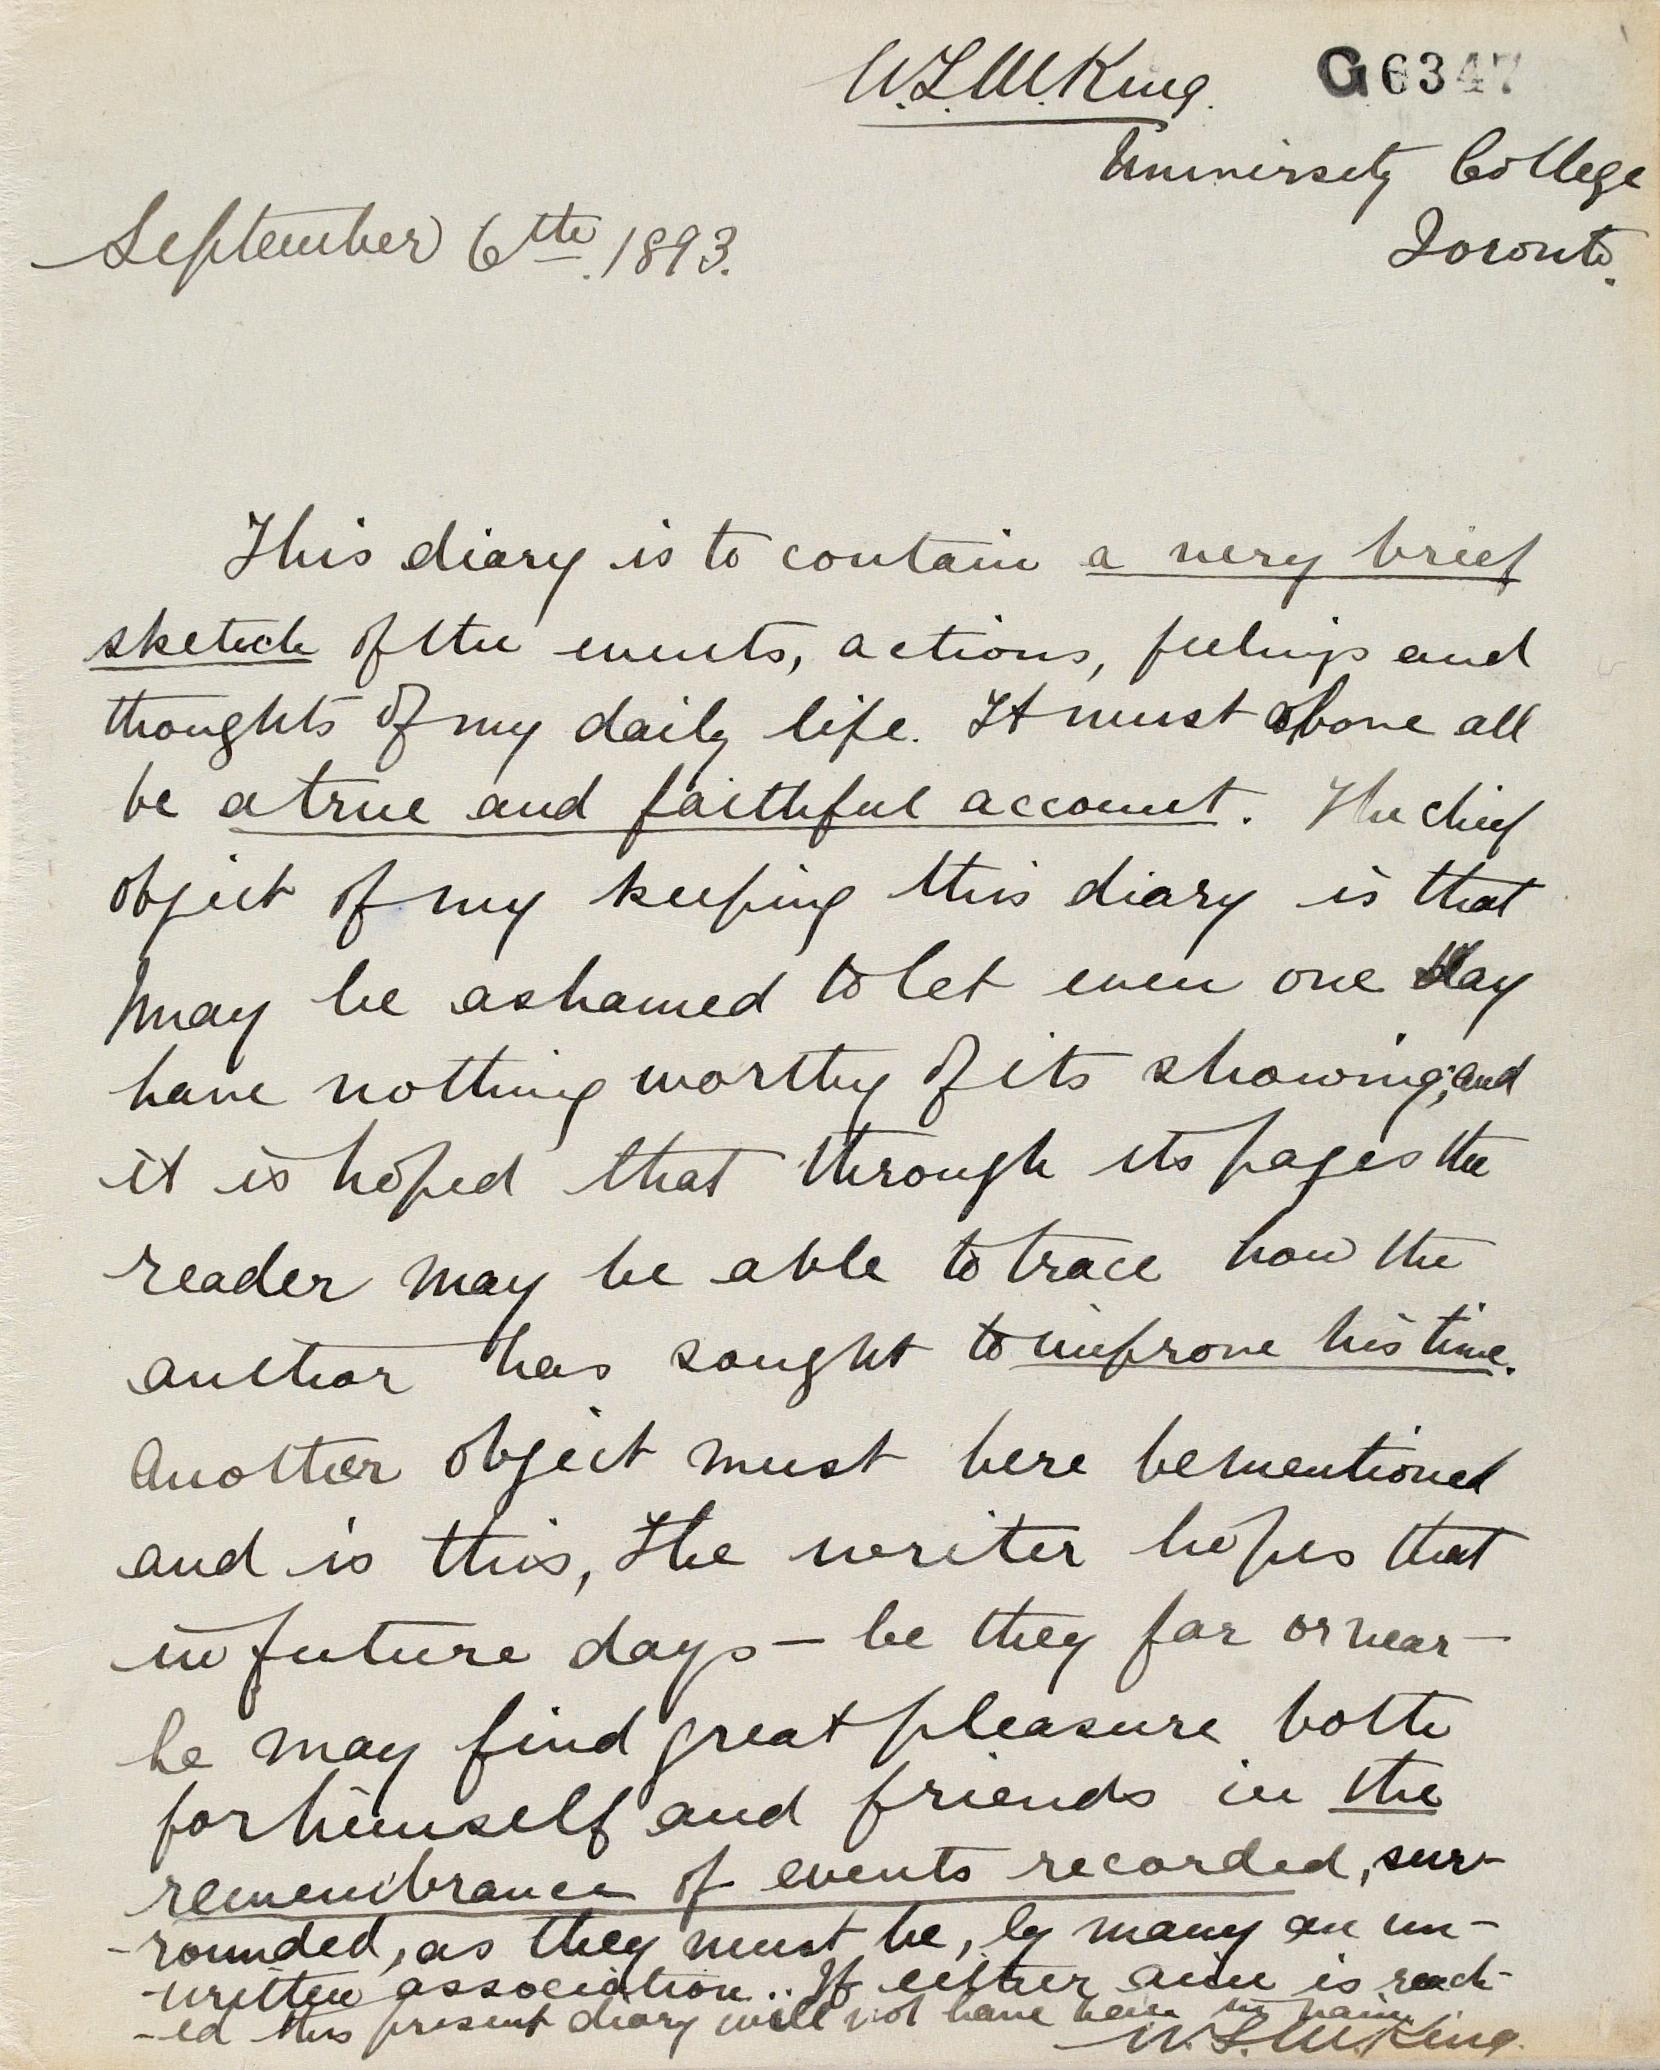 W.L.M.King. G6347
University College
Toronto.
September 6th. 1893.
This diary is to contain a very brief
sketch of the events, actions, feelings and
thoughts of my daily life. It must above all
be a true and faithful account. The chief
object of my keeping this diary is that
I may be ashamed to let even one day
have nothing worthy of its showing, and
it is hoped that through its pages the
reader may be able to trace how the
author has sought to improve his time.
Another object must here be mentioned
and is this, The writer hopes that
in future days – be they far or near –
he may find great pleasure both
for himself and friends in the
remembrance of events recorded, sur-
-rounded, as they must be, by many an un-
-written association.. If either aim is reach-
-ed this present diary will not have been in vain.
W.L.M.King.